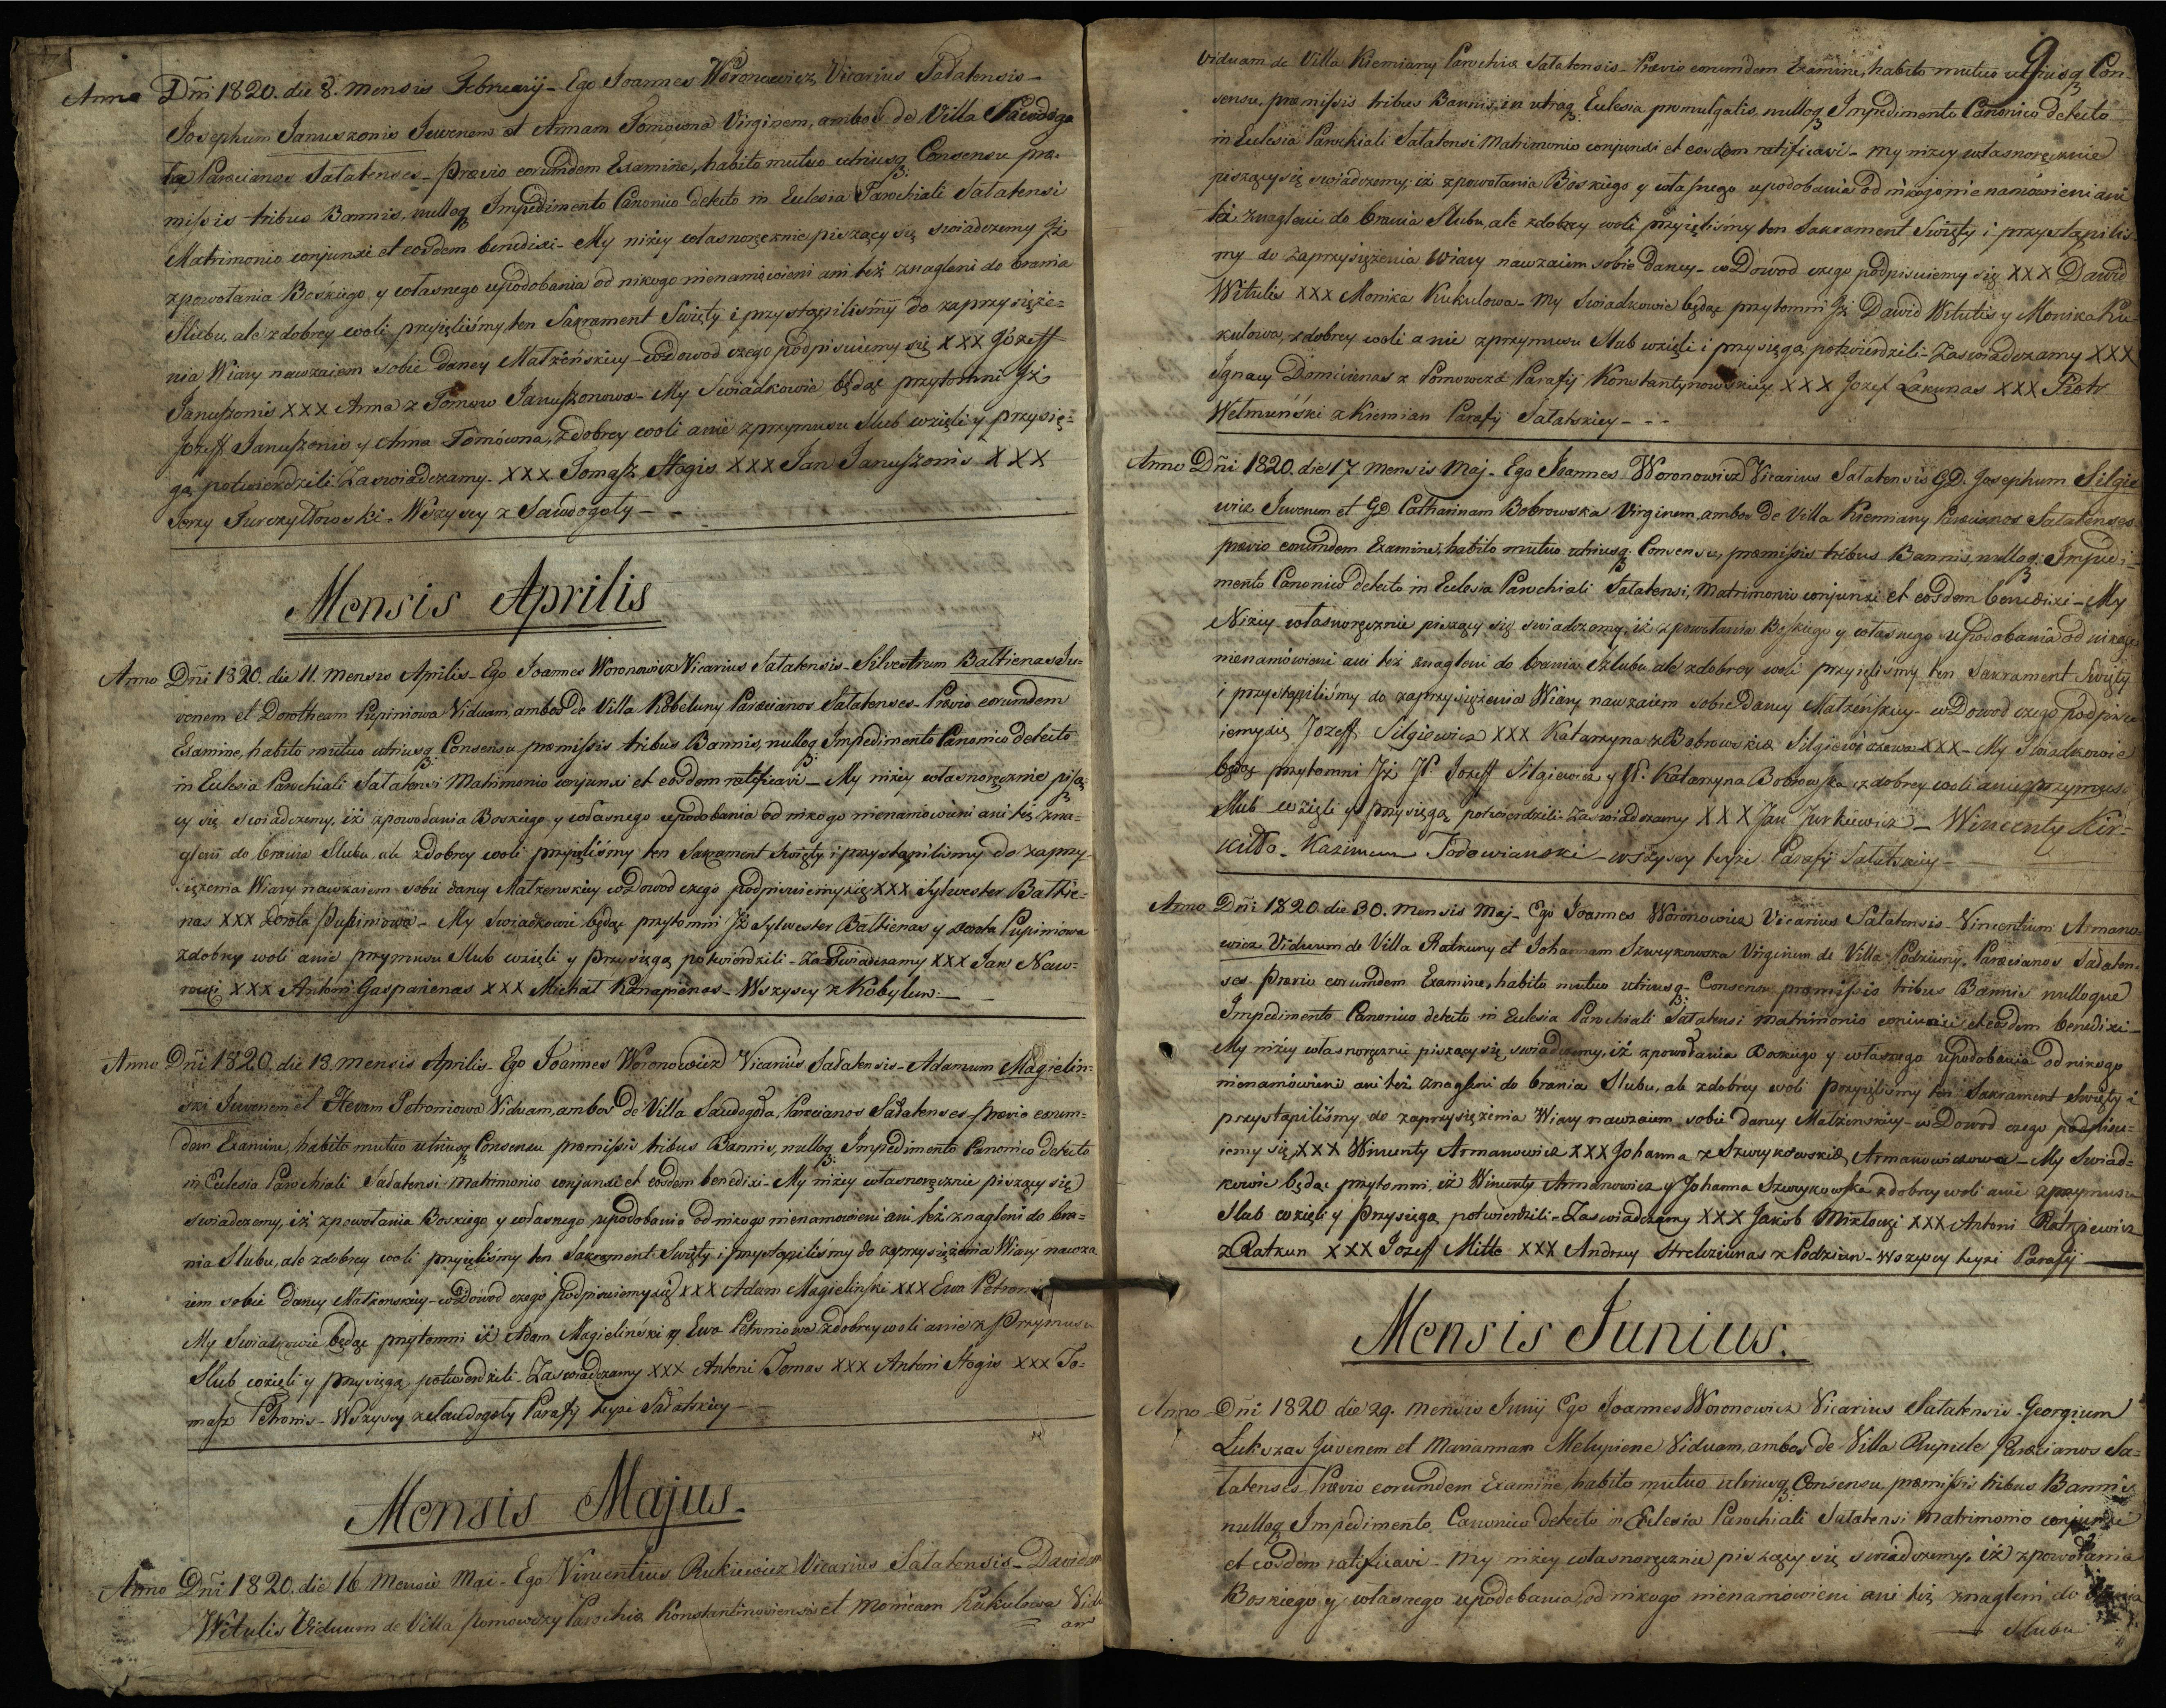 Anno Dñi 1820. die 8. mensis Februarij - Ego Joannes Woronowicz Vicarius Sałatensis -
Josephum Januszonis Juvenem et Annam Tomowna Virginem, ambos de Villa Sawdoga
ła Parœcianos Sałatenses - prævio eorumdem Examine, habito mutuo utriusq: Consensu præ-
missis tribus Bannis, nulloq: Impedimento Canonico detecto in Eclesia Parochiali Sałatensi
Matrimonio conjunxi et eosdem benedixi - My niżey własnoręcznie piszący się swiadczemy Jż
zpowołania Boskiego y własnego upodobania od nikogo nienamówieni ani też znagleni do brania
Slubu, ale zdobrey woli przyięliśmy ten Sakrament Swięty i przystąpiliśmy do zaprzysięże-
nia Wiary nawzaiem sobie daney Małżeńskiey - wdowod czego podpisuiemy się XXX Józeff
Januszonis XXX Anna z Tomow Januszonowa - My Swiadkowie będąc przytomni Jż
Jozeff Januszonis y Anna Tomówna, zdobrey woli a nie zprzymusu Slub wzięli y przysię-
gą potwierdzili Zaswiadczamy - XXX Tomasz Stogis XXX Jan Januszonis XXX
Jerzy Jurczyltowski - Wszyscy z Sawdogoły -
Mensis Aprilis
Anno Dñi 1820. die 11. mensis Aprilis - Ego Joannes Woronowicz Vicarius Sałatensis - Silvestrum Baltienas Ju-
venem et Dorotheam Pupiniowa Viduam, ambos de Villa Kobeluny Parœcianos Sałatenses - Prævio eorumdem
Examine, habito mutuo utriusq: Consensu præmissis tribus Bannis, nulloq: Impedimento Canonico detecto
in Eclesia Parochiali Sałatensi Matrimonio conjunxi et eosdem ratificavi - My niżey własnoręcznie pisżą
cy się swiadczemy, iż zpowołania Boskiego y własnego upodobania od nikogo nienamówieni ani też zna-
gleni do brania Slubu, ale zdobrey woli przyięliśmy ten Sakrament Swięty i przystąpiliśmy do zaprzy-
siężenia Wiary nawzaiem sobie daney Małżenskiey wDowód czego podpisuiemy się XXX Sylwester Baltie-
nas XXX Dorota Pupiniowa - My Swiadkowie będąc przytomni Jż Sylwester Baltienas y Dorota Pupiniowa
zdobrey woli anie przymusu Slub wzięli y przysięgą potwierdzili - Zaswiadczamy XXX Jan Naw-
rocki XXX Antoni Gasparienas XXX Michał Kanapienas - Wszyscy z Kobylun -
Anno Dñi 1820. die 18. mensis Aprilis - Ego Joannes Woronowicz Vicarius Sałatensis - Adamum Magielin-
ski Juvenem et Hevam Petroniowa Viduam, ambos de Villa Saudogoła, Parœcianos Sałatenses - prævio eorum-
dem Examine, habito mutuo utriusq: Consensu præmissis tribus Bannis, nulloq: Impedimento Canonico detecto
in Eclesia Parochiali Sałatensi Matrimonio conjunxi et eosdem benedixi - My niżey własnoręcznie piszący się
swiadczemy, iż zpowołania Boskiego y własnego upodobania od nikogo nienamówieni ani też znagleni do bra-
nia Slubu, ale zdobrey woli przyięliśmy ten Sakrament Swięty i przystąpiliśmy do zaprzysiężenia Wiary nawza
iem sobie daney Małżenskiey - wDowód czego podpisuiemy się XXX Adam Magielinski XXX Ewa Petroni
My Swiadkowie będąc przytomni iż Adam Magielinski y Ewa Petroniowa zdobrey woli anie z Przymusu
Slub wzięli y przysięgą potwierdzili - Zaswiadczamy XXX Antoni Tomas XXX Antoni Stogis XXX To-
masz Petronis - Wszyscy z Saudogoły Parafij teyże Sałatskiey -
Mensis Majus.
Anno Dñi 1820. die 16 Mensis Maj - Ego Vincentius Rukiewicz Vicarius Sałatensis - Davidem
Witulis Viduum de Villa Pomowczy Parochiæ Konstantinoviensis et Monicam Kukulowa Vidu
am
9
Viduam de Villa Kiemiany Parochiæ Sałatensis - Prævio eorumdem Examine, habito mutuo utriusq: Con-
sensu, præmissis tribus Bannis in utraq: Eclesia promulgatis, nulloq: Impedimento Canonico detecto
in Eclesia Parochiali Sałatensi Matrimonio conjunxi et eosdem ratificavi - My niżey własnoręcznie
piszący się swiadczemy, iż zpowołania Boskiego y własnego upodobania od nikogo nienamówieni ani
też znagleni do brania Slubu, ale zdobrey woli przyięliśmy ten Sakrament Swięty i przystąpiliś-
my do zaprzysiężenia Wiary nawzaiem sobie daney - wDowod czego podpisuiemy się XXX Dawid
Witulis XXX Monika Kukulowa - My Swiadkowie będąc przytomni Jż Dawid Witulis y Monika Ku-
kulowa, zdobrey woli a nie zprzymusu Slub wzięli i przysięgą potwierdzili - Zaswiadczamy XXX
Ignacy Domicienas z Pomowcza Parafij Konstantynowskiey XXX Jozef Łakunas XXX Piotr
Welmuński z Kiemian Parafij Sałatskiey - - -
Anno Dñi 1820. die 17 mensis Maj - Ego Joannes Woronowicz Vicarius Sałatensis GD. Josephum Silgie
wicz Juvenem et GD. Catharinam Bobrowska Virginem, ambos de Villa Kiemiany Parœcianos Sałatenses
prævio eorumdem Examine, habito mutuo utriusq: Consensu, præmissis tribus Bannis, nulloq: Impedi-
mento Canonico detecto in Eclesia Parochiali Sałatensi, Matrimonio conjunxi et eosdem benedixi - My
Niżey własnoręcznie piszący się swiadczemy, iż zpowołania Boskiego y własnego upodobania od nikogo
nienamówieni ani też znagleni do brania Szlubu, ale zdobrey woli przyięliśmy ten Sakrament Swięty
i przystąpiliśmy do zaprzysiężenia Wiary nawzaiem sobie daney Małżeńskiey - wDowod czego podpisu
iemy się Jozeff Silgiewicz XXX Katarzyna z Bobrowskich Silgiewiczowa XXX - My Swiadkowie
będąc przytomni Jż JP. Jozeff Silgiewicz y JP. Katarzyna Bobrowska, zdobrey woli anie zprzymusu
Slub wzięli y przysięgą potwierdzili - Zaswiadczamy XXX Jan Jurkiewicz - Wincenty Kir-
kiłło - Kazimierz Todowianski - wszyscy teyże Parafij Sałatskiey -
Anno Dñi 1820. die 30. Mensis Maj - Ego Joannes Woronowicz Vicarius Sałatensis - Vincentium Armano-
wicz Viduum de Villa Ratkuny et Johannam Szwrykowska Virginem de Villa Podziuny, Parœcianos Sałaten-
ses - Prævio eorumdem Examine, habito mutuo utriusq: Consensu præmissis tribus Bannis nulloque
Impedimento Canonico detecto in Eclesia Parochiali Sałatensi matrimonio conjunxi et eosdem benedixi -
My niżey własnoręcznie piszący się swiadczemy, iż zpowołania Boskiego y własnego upodobania od nikogo
nienamówieni ani też znagleni do brania Slubu, ale zdobrey woli przyięliśmy ten Sakrament Swięty i
przystąpiliśmy do zaprzysiężenia Wiary nawzaiem sobie daney Małżenskiey - wDowod czego podpisu-
iemy się XXX Wincenty Armanowicz XXX Johanna z Szwrykowskich Armanowiczowa - My Swiad-
kowie będąc przytomni, iż Wincenty Armanowicz y Johanna Szwrykowska zdobrey woli anie zprzymusu
Slub wzięli y Przysięgą potwierdzili - Zaswiadczamy XXX Jakob Miklowzi XXX Antoni Ratkiewicz
z Ratkun XXX Jozeff Mitte XXX Andrzey Strelziunas z Podziun - Wszyscy teyże Parafij
Mensis Junius.
Anno Dñi 1820 die 29. mensis Junij Ego Joannes Woronowicz Vicarius Sałatensis - Georgium
Lukszas Juvenem et Mariannam Melupiene Viduam, ambos de Villa Rupele Parœcianos Sa-
łatenses - Prævio eorumdem Examine, habito mutuo utriusq: Consensu, præmissis tribus Bannis
nulloq: Impedimento Canonico detecto in Eclesia Parochiali Sałatensi Matrimonio conjunxi
et eosdem ratificavi - My niżey własnoręcznie piszący się swiadczemy, iż zpowołania
Boskiego y własnego upodobania, od nikogo nienamówieni ani też znagleni do brania
Slubu